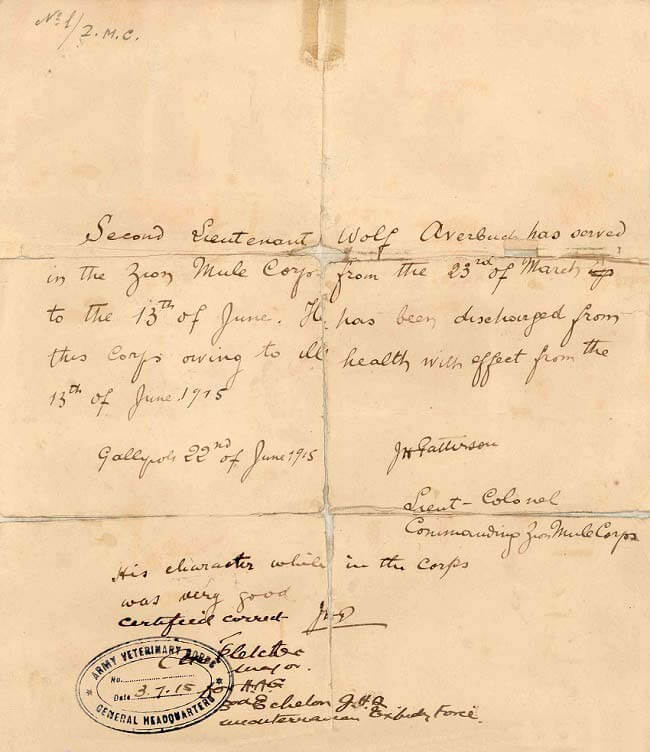 No 1/Z.M.C.
Second Lieutenant Wolf Averbuch has served
in the Zion Mule Corps from the 23rd of March
to the 13th of June. He has been discharged from
this Corps owing to ill health with effect from the
13th of June 1915
Gallipoli 22nd of June 1915
JHPatterson
Lieut-Colonel
Commanding Zion Mule Corps
His character while in the Corps
was very good
certified correct JHP
Fletcher
Major.
for
Echelon G.H.Q
Mediterranean Expedy Force.
ARMY VETERINARY CORPS
No.
Date 3.7.15
GENERAL HEADQUARTERS